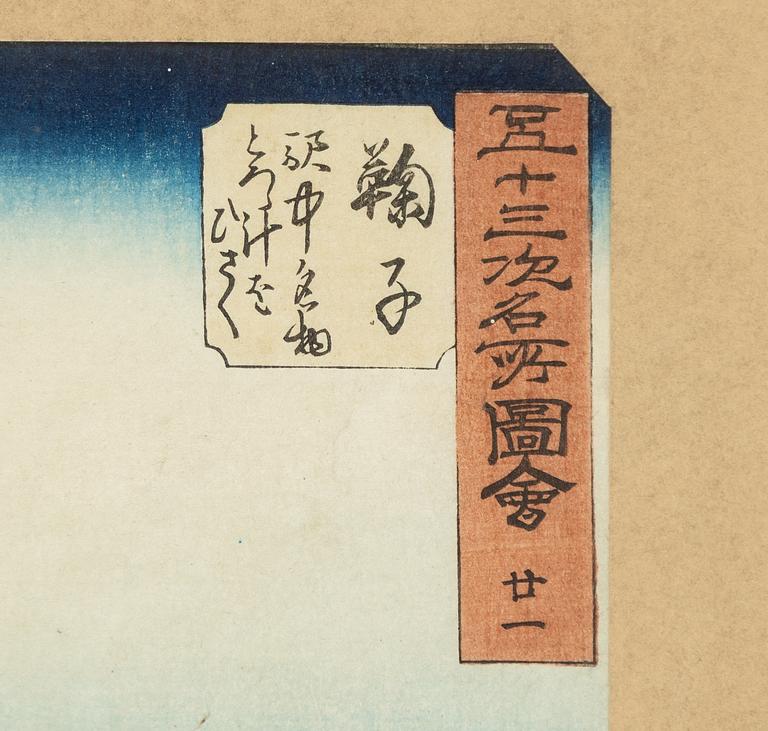 五十三次名所圖會 廿一
鞠子
駅中名物
とろゝ汁を
ひさく